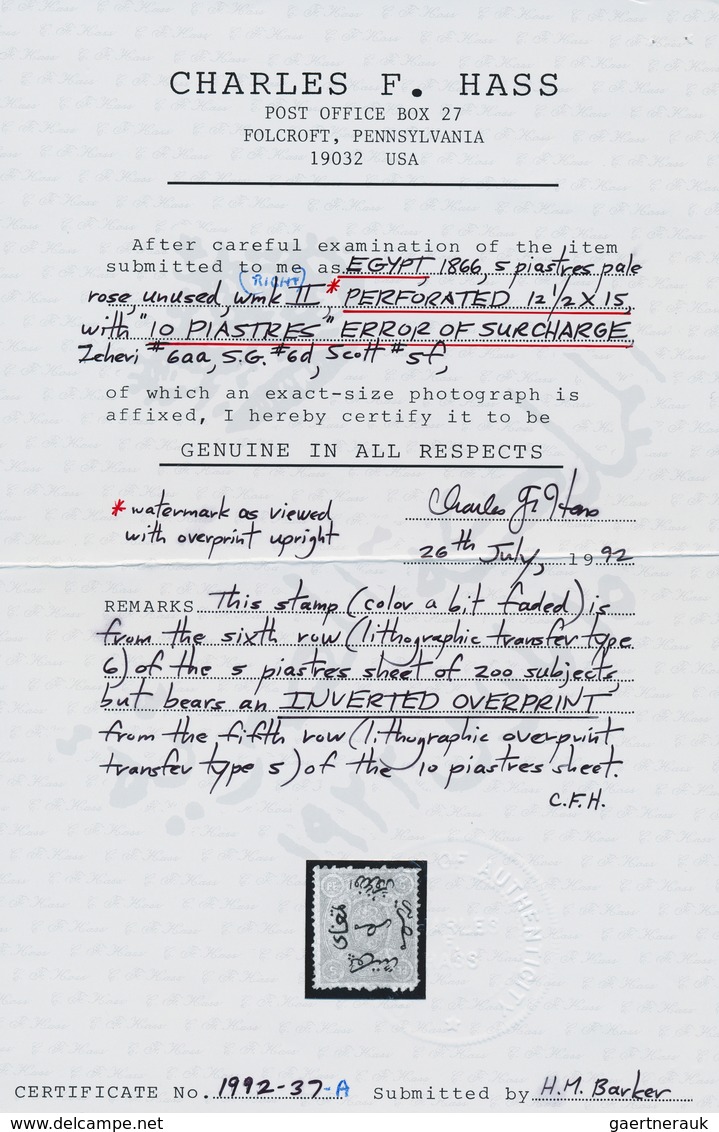 CHARLES F. HASS
POST OFFICE BOX 27
FOLCROFT, PENNSYLVANIA
19032 USA
After careful examination of the item
submitted to me as EGYPT, 1866, 5 piastres pale
(RIGHT)
rose, unused, wmk II,* PERFORATED 12 1/2 X 15,
with "10 PIASTRES" ERROR OF SURCHARGE,
Zehevi #6aa, S.G. #6d, Scott #5f,
of which an exact-size photograph is
affixed, I hereby certify it to be
GENUINE IN ALL RESPECTS
* watermark as viewed
with overprint upright
Charles F. Hass
26th July, 1992
REMARKS This stamp (color a bit faded) is
from the sixth row (lithographic transfer type
6) of the 5 piastres sheet of 200 subjects,
but bears an INVERTED OVERPRINT
from the fifth row (lithographic overprint
transfer type 5) of the 10 piastres sheet.
C.F.H.
OF AUTHENTICITY
CERTIFICATE No. 1992-37-A Submitted by H.M. Barker
gaertnerauk